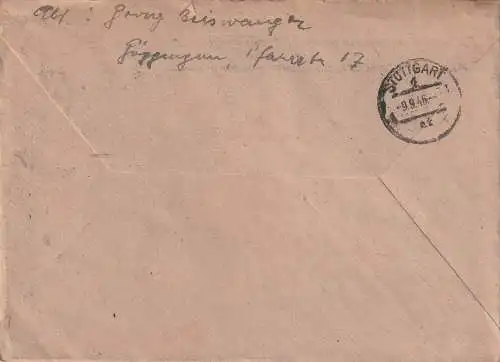 Abs: Georg Beiswanger
Göppingen, Pfarrstr 17
STUTTGART
-9.9.46.-